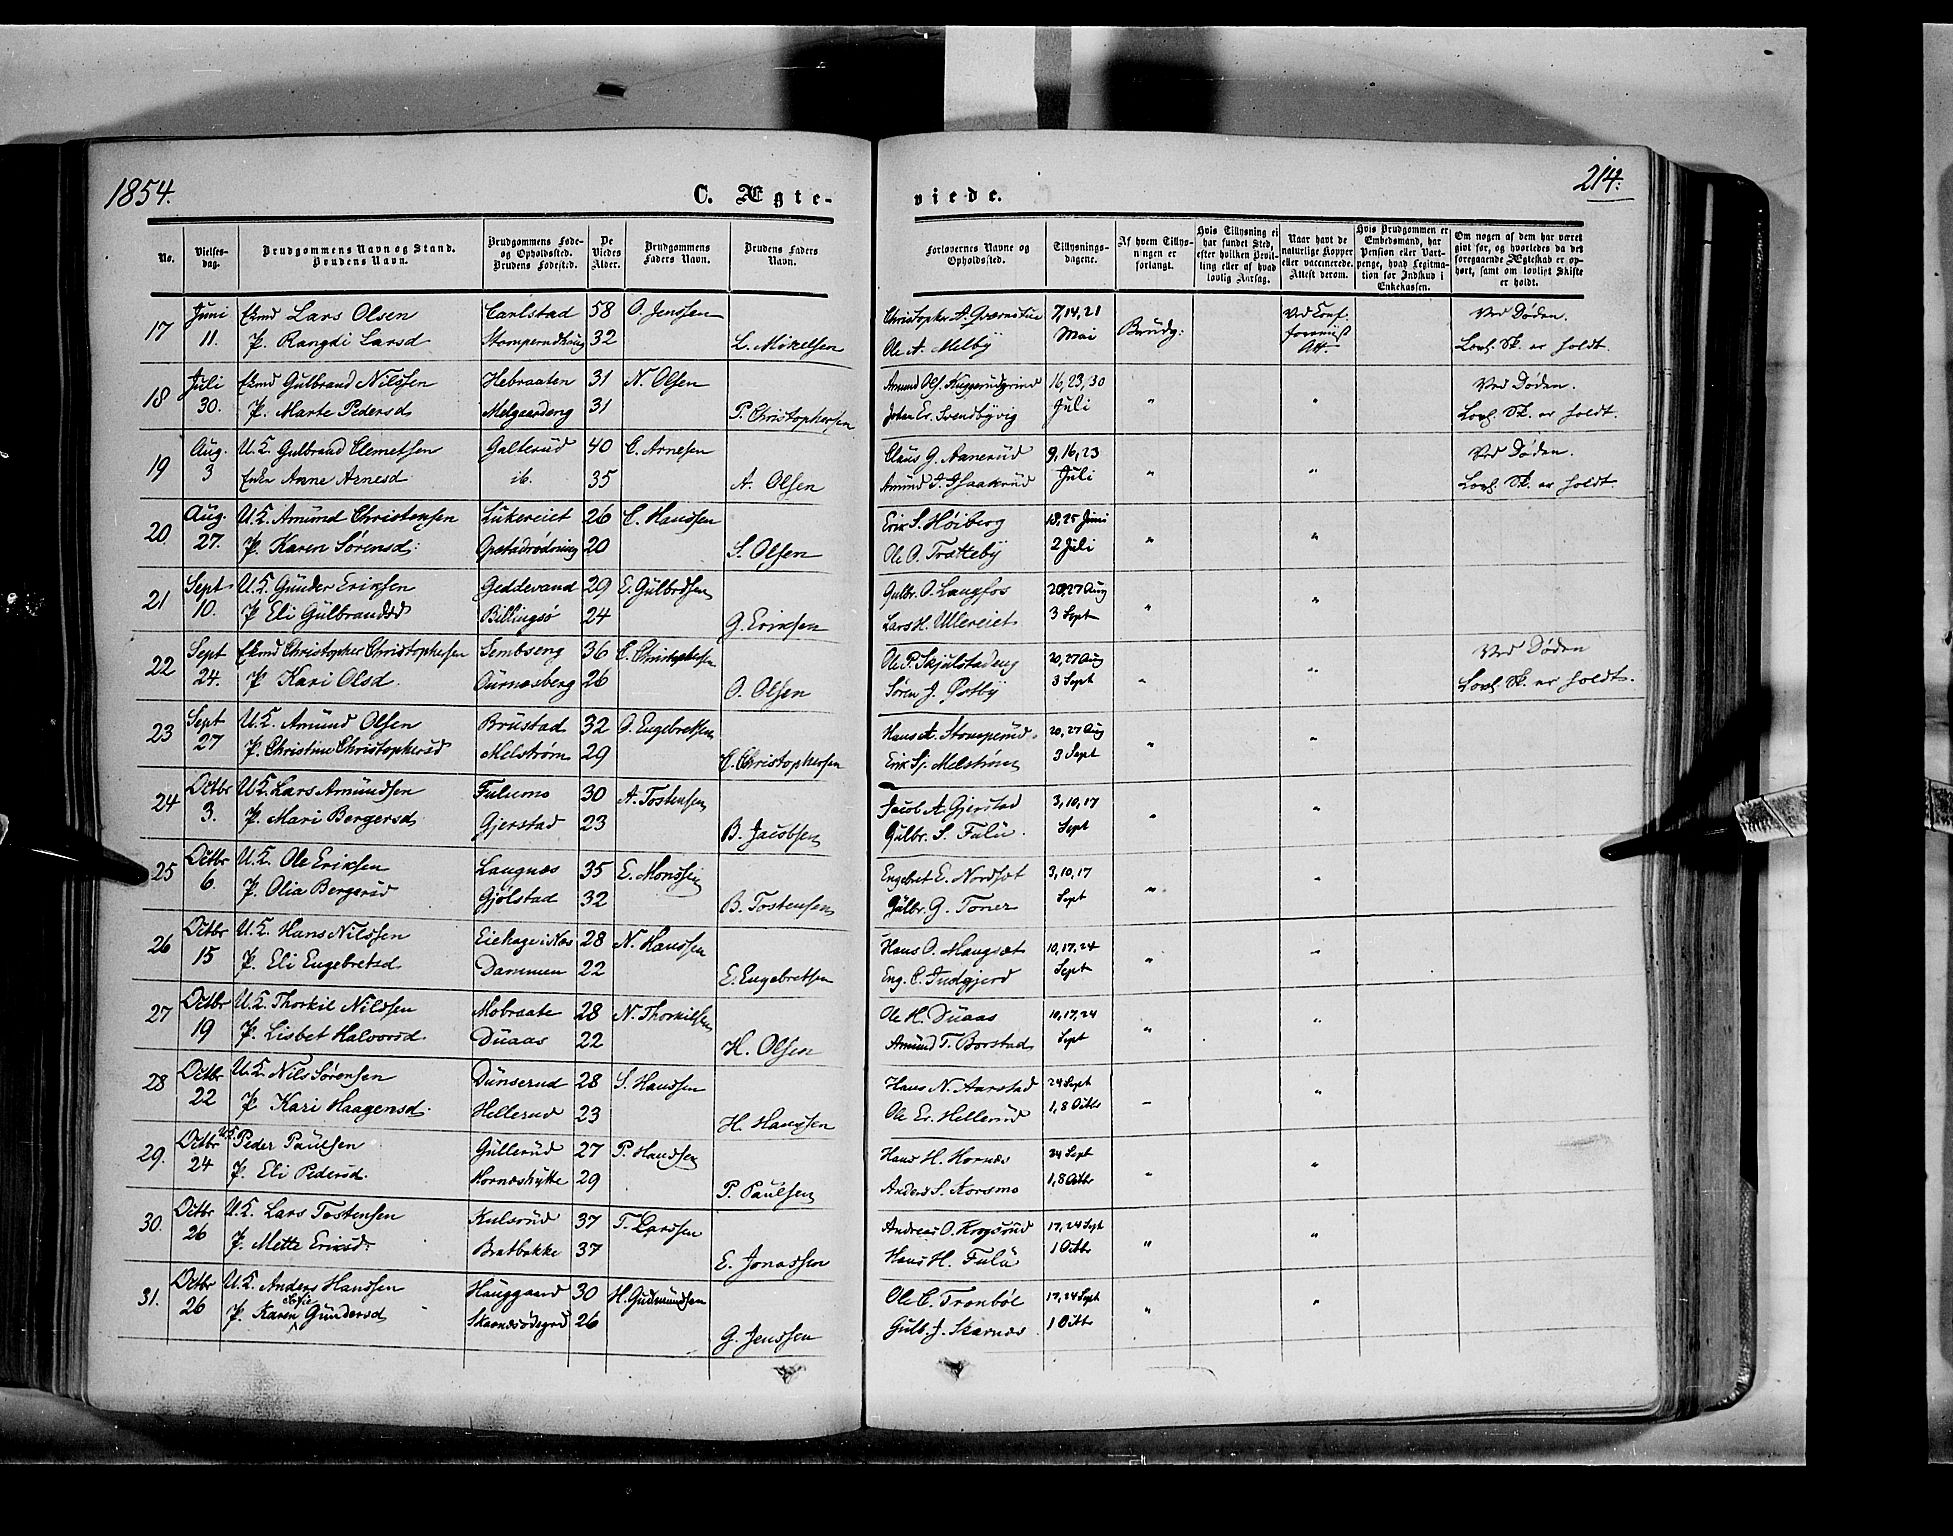 1854.
C. Ægte-
viede.
214.
No.
Vielses-
dag.
Brudgommens Navn og Stand.
Brudens Navn.
Brudgommens Føde-
og Opholdssted.
Brudens Fødested.
De
Viedes
Alder.
Brudgommens
Faders Navn.
Brudens Faders
Navn.
Forlovernes Navne og
Opholdssted.
Tillysnings-
dagene.
Af hvem Tillys-
ningen er
forlangt.
Hvis Tillysning ei
har fundet Sted,
efter hvilken Bevil-
ling eller af hvad
lovlig Aarsag.
Naar havt de
naturlige Kopper
eller vaccinerede.
Attest derom.
Hvis Brudgommen er
Embedsmand, har
Pension eller Vart-
penge, hvad Legitima-
tion for Indskud i
Enkekassen.
Om nogen af dem har været
gift før, og hvorledes da det
foregaaende Ægteskab er op-
hørt, samt om lovligt Skifte
er holdt.
17 Juni Ekmd Lars Olsen Carlstad 58 O. Jenssen 7, 14, 21 Ved Conf. Ved Døden.
11. P. Rangdi Larsd 32 L. Mikelsen Ole A. Melby Mai Brudg: Att. Lovl. Sk. er holdt.
18 Juli Ekmd Gulbrand Nilssen Hebraaten 31 N. Olsen 16, 23, 30 Ved Døden.
30. P. Marte Pedersd Melgaardeng 31 P. Christophersen Johan Er. Svendbyvig Juli " " Lovl. Sk. er holdt.
19 Aug. U.K. Gulbrand Clemetsen Galterud 40 C. Arnesen Claus G. Aanerud 9, 16, 23 Ved Døden.
3 Enke Anne Arnesd ib. 35 A. Olsen Juli " " Lovl. Sk. er holdt.
20 Aug. U.K. Amund Christensen Lukereiet 26 C. Hanssen Erik S. Høiberg 18, 25 Juni
27. P. Karen Sørensd: 20 S. Olsen Ole O. Trøtteby 2 Juli " "
21 Sept U.K. Gunder Eriksen Geddevand 29 E. Gulbrdsen Gulbr. O. Langfos 20, 27 Aug
10. P Eli Gulbrandsd Billingsø 24 G. Eriksen Lars H. Ullereiet 3 Sept " "
22 Sept Ekmd Christopher Christophersen Sembseng 36 C. Christophersen Ole P. Skjulstadeng 20, 27 Aug Ved Døden
24. P Kari Olsd. Ournæsberg 26 O. Olsen Søren J. Østby 3 Sept " " Lovl. Sk. er holdt.
23 Sept U.K. Amund Olsen Brustad 32 O. Engebretsen Hans A. Stomperud. 20, 27 Aug
27 P. Christine Christophersd Melstrøm 29 C. Christophersen Erik Sj. Melstrøm 3 Sept " "
24 Octbr U.K. Lars Amundsen Fulumo 30 A. Tostensen Jacob A. Gjerstad 3, 10, 17
3. P. Mari Bergersd Gjerstad 23 B. Jacobsen Gulbr. S. Fulu. Sept " "
25 Octbr U.K. Ole Eriksen Langnæs 35 E. Monssen Engebret E. Nordset 3, 10, 17
6. P. Olia Bergersd Gjølstad 32 B. Tostensen Gulbr. G. Toner Sept " "
26 Octbr U.K. Hans Nilssen 28 N. Hanssen Hans O. Haugsæt 10, 17, 24
15 P. Eli Engebretsd Dammen 22 E. Engebretsen Eng. C. Indgjerd Sept " "
27 Octbr U.K. Thorkil Nilssen Mobraate 28 N. Thorkilsen Ole H. Duaas 10, 17, 24
19 P. Lisbet Halvorsd Duaas 22 H. Olsen Amund T. Borstad Sept " "
28 Octbr U.K. Nils Sørensen Dunserud 28 S. Hanssen Hans N. Aarstad 24 Sept
22 P Kari Haagensd. Hellerud 23 H. Hanssen Ole Er. Hellerud 1, 8 Octbr " "
29. Octbr U.K. Peder Paulsen Gullerud 27 P. Hanssen Hans H. Hornæs 24 Sept
24 P. Eli Pedersd. Hornæshytte 29 P. Paulsen Anders S. Korsmo 1, 8 Octbr " "
30. Octbr U.K. Lars Tostensen Kulsrud 37 T. Larssen Andreas O. Krogsrud 17, 24 Sept
26 P. Mette Eriksd. Bratbakke 37 E. Jonassen Hans H. Fulu 1 Octbr " "
31. Octbr U.K. Anders Hanssen Hauggaard 30 H. Gudmundsen Ole C. Tronbøl 17, 24 Sept
26 P. Karen Sofie Gundersd Skarnæsødegrd 26 G. Jenssen Gulb. J. Skarnæs 1 Octbr " "